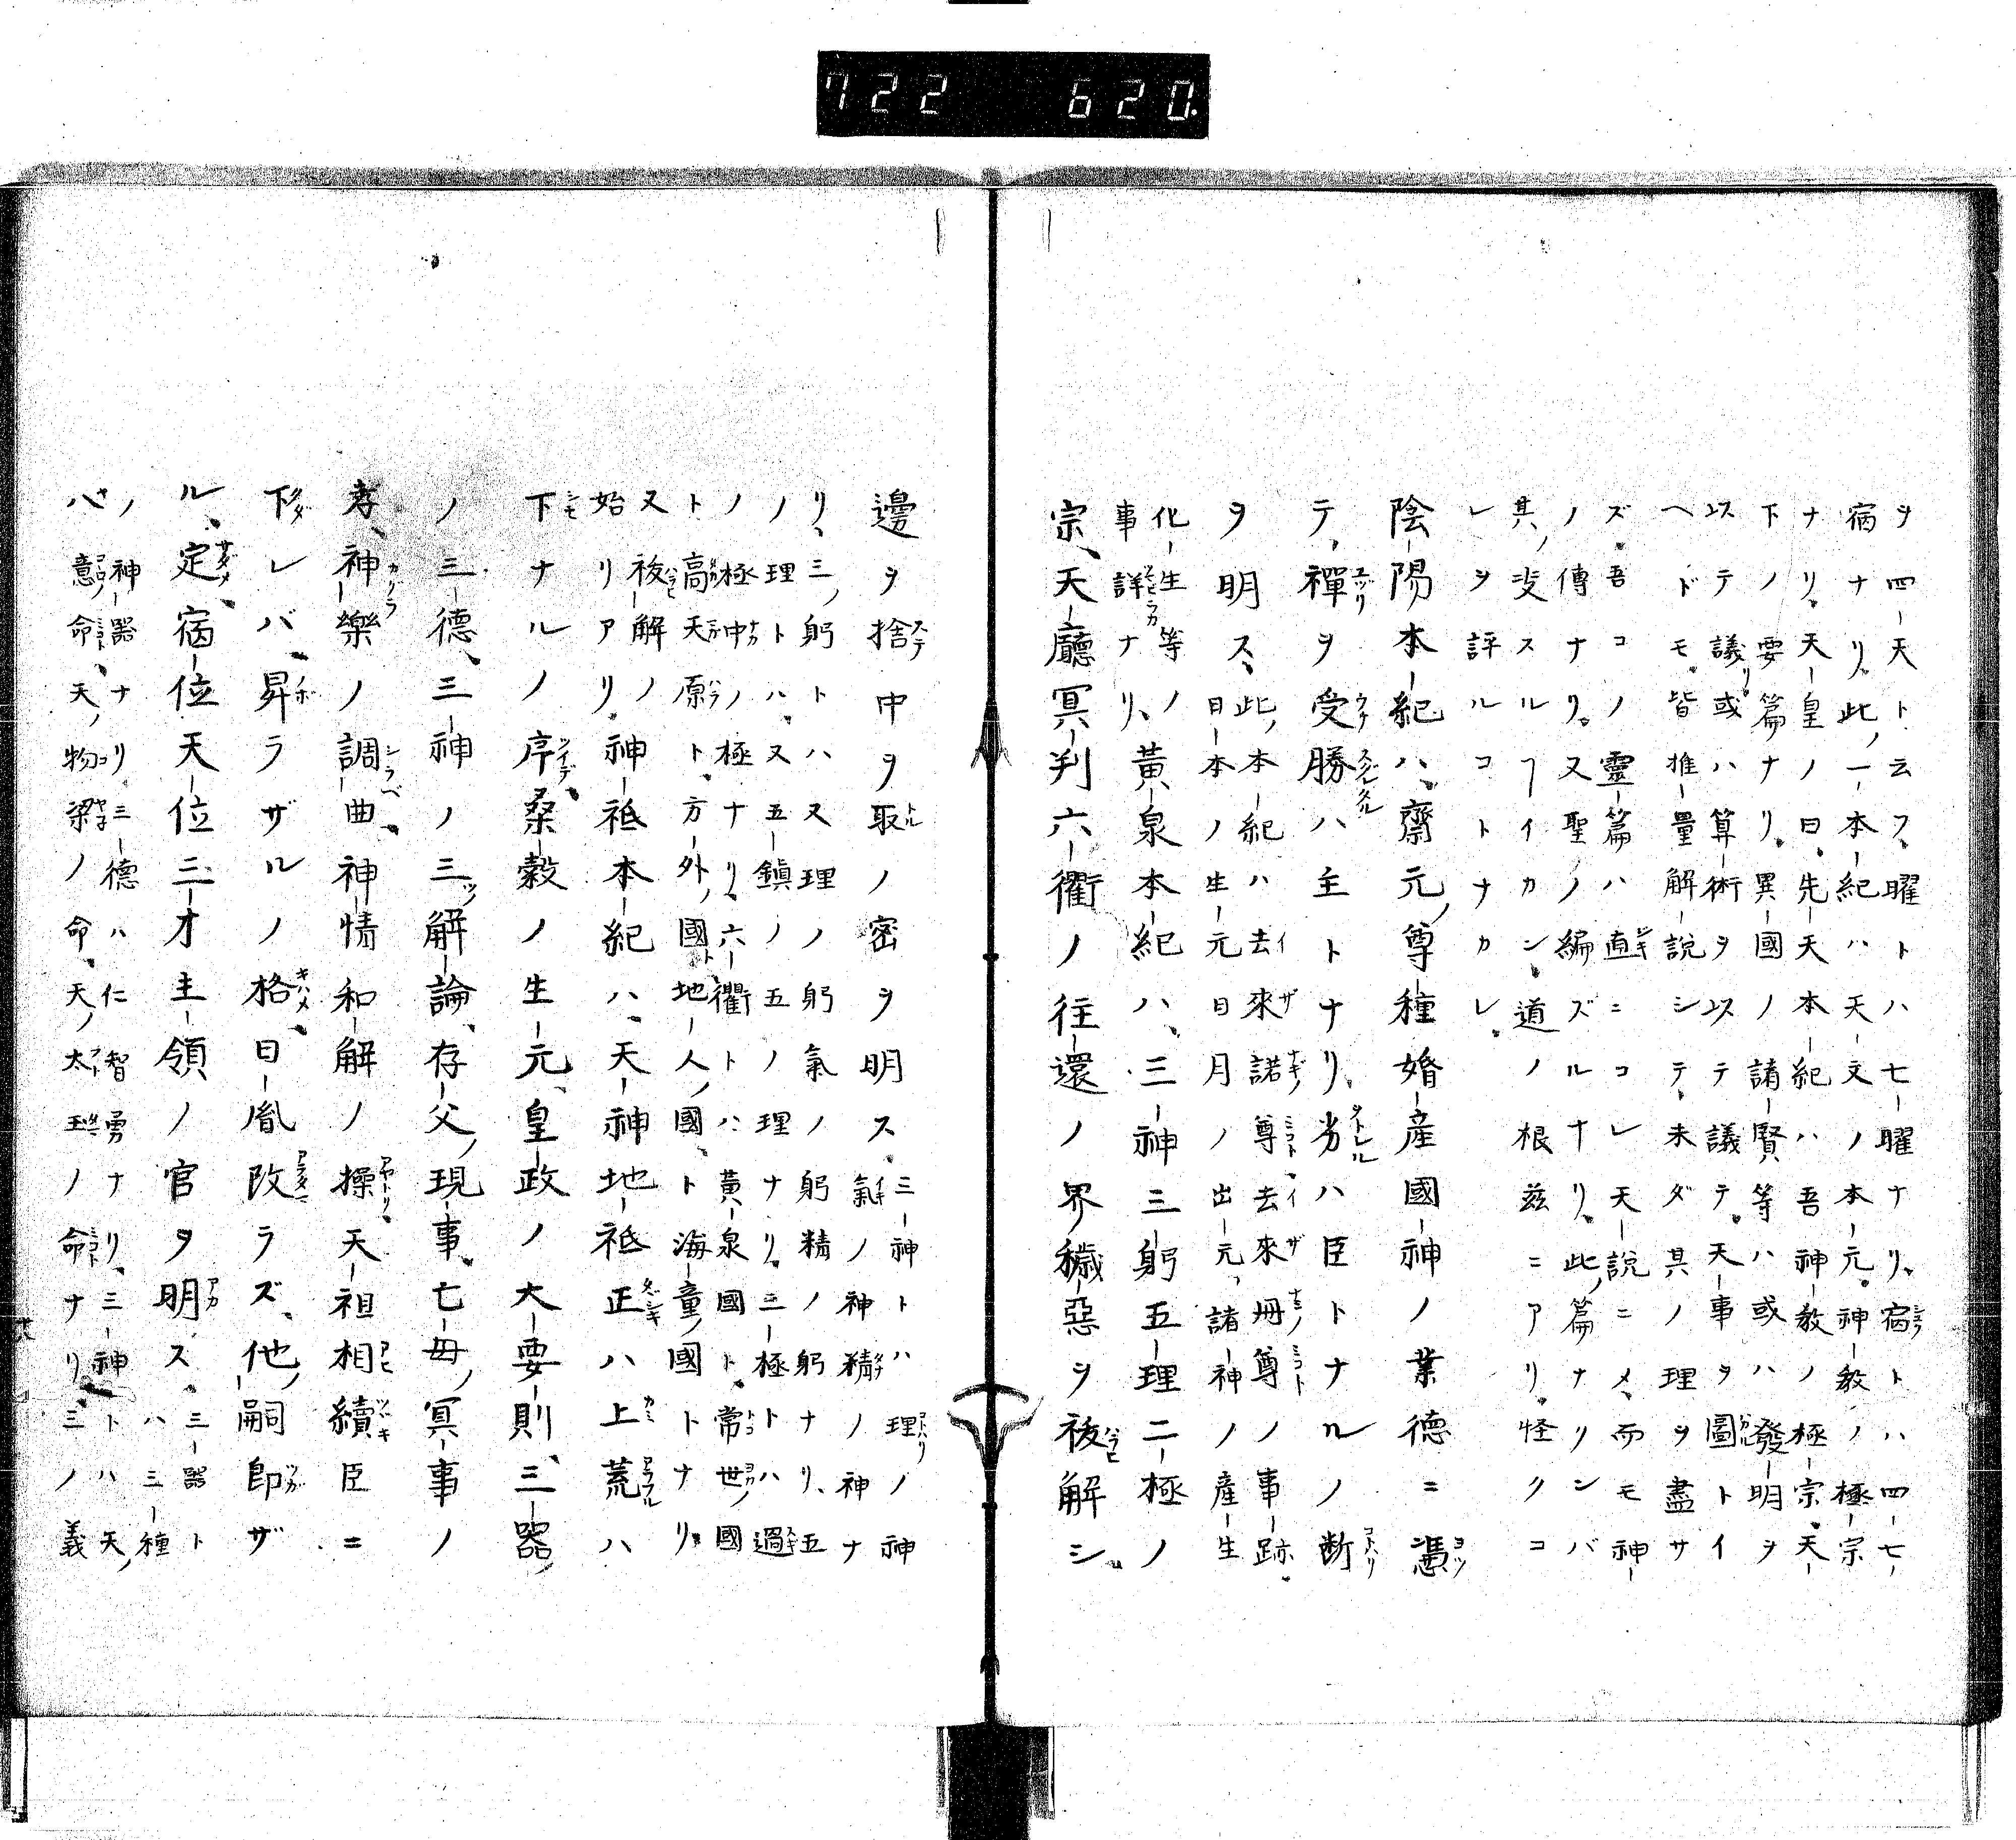 ヲ四天ト云フ、曜トハ七曜ナリ、宿トハ四七ノ
宿ナリ。此ノ一本紀ハ天文ノ本元。神教ノ極宗
ナリ。天皇ノ曰、先天本紀ハ吾神教ノ極宗、天
下ノ要篇ナリ。異國ノ諸賢等ハ或ハ發明ヲ
以テ議リ。或ハ算術ヲ以テ議テ。天事ヲ圖トイ
ヘドモ。皆推量解説シテ、未ダ其ノ理ヲ盡サ
ズ。吾コノ靈篇ハ直ニコレ天説ニメ、而モ神
ノ傳ナリ。又聖ノ編ズルナリ。此ノ篇ナリンバ
其ノ沒スルヿイカン、道ノ根茲ニアリ。怪クコ
レヲ評ルコトナカレ。
陰陽本紀ハ、齋元ノ尊種婚産國神ノ業德ニ憑
テ、禪ヲ受勝ハ主トナリ、劣ハ臣トナルノ断
ヲ明ス、此ノ本紀ハ去來諾ノ尊、去來冊ノ尊ノ事跡。
日本ノ生元日月ノ出元、諸神ノ産生
化生等ノ
事詳ナリ、黄泉本紀ハ、三神三躬五理二極ノ
宗、天廳冥判六衢ノ往還ノ界穢惡ヲ祓解シ。
邊ヲ捨中ヲ取ノ密ヲ明ス、三神トハ理ノ神
氣ノ神精ノ神ナ
リ、三ノ躬トハ又理ノ躬氣ノ躬精ノ躬ナリ、五
ノ理トハ。又五鎮ノ五ノ理ナリ。二極トハ過
ノ極中ノ極ナリ、六衢トハ黄泉國ト。常世ノ國
ト高天原ト。方外ノ國ト、地人ノ國、ト海童ノ國トナリ。
又祓解ノ
始リアリ。神祇本紀ハ、天神地祇正ハ上荒ハ
下ナルノ序、桑穀ノ生元、皇政ノ大要則、三器
ノ三德、三神ノ三解論、存父ノ現事。亡母ノ冥事ノ
孝、神樂ノ調曲、神情和解ノ操、天祖相續臣ニ
下レバ、昇ラザルノ格、日胤改ラズ、他嗣即ザ
ル、定、宿位天位三才主領ノ官ヲ明ス。三器ト
ハ三種
ノ神器ナリ。三德ハ仁智勇ナリ、三神トハ天ノ
八意ノ命、天ノ物梁ノ命、天ノ太玉ノ命ナリ三ノ義
722 620.